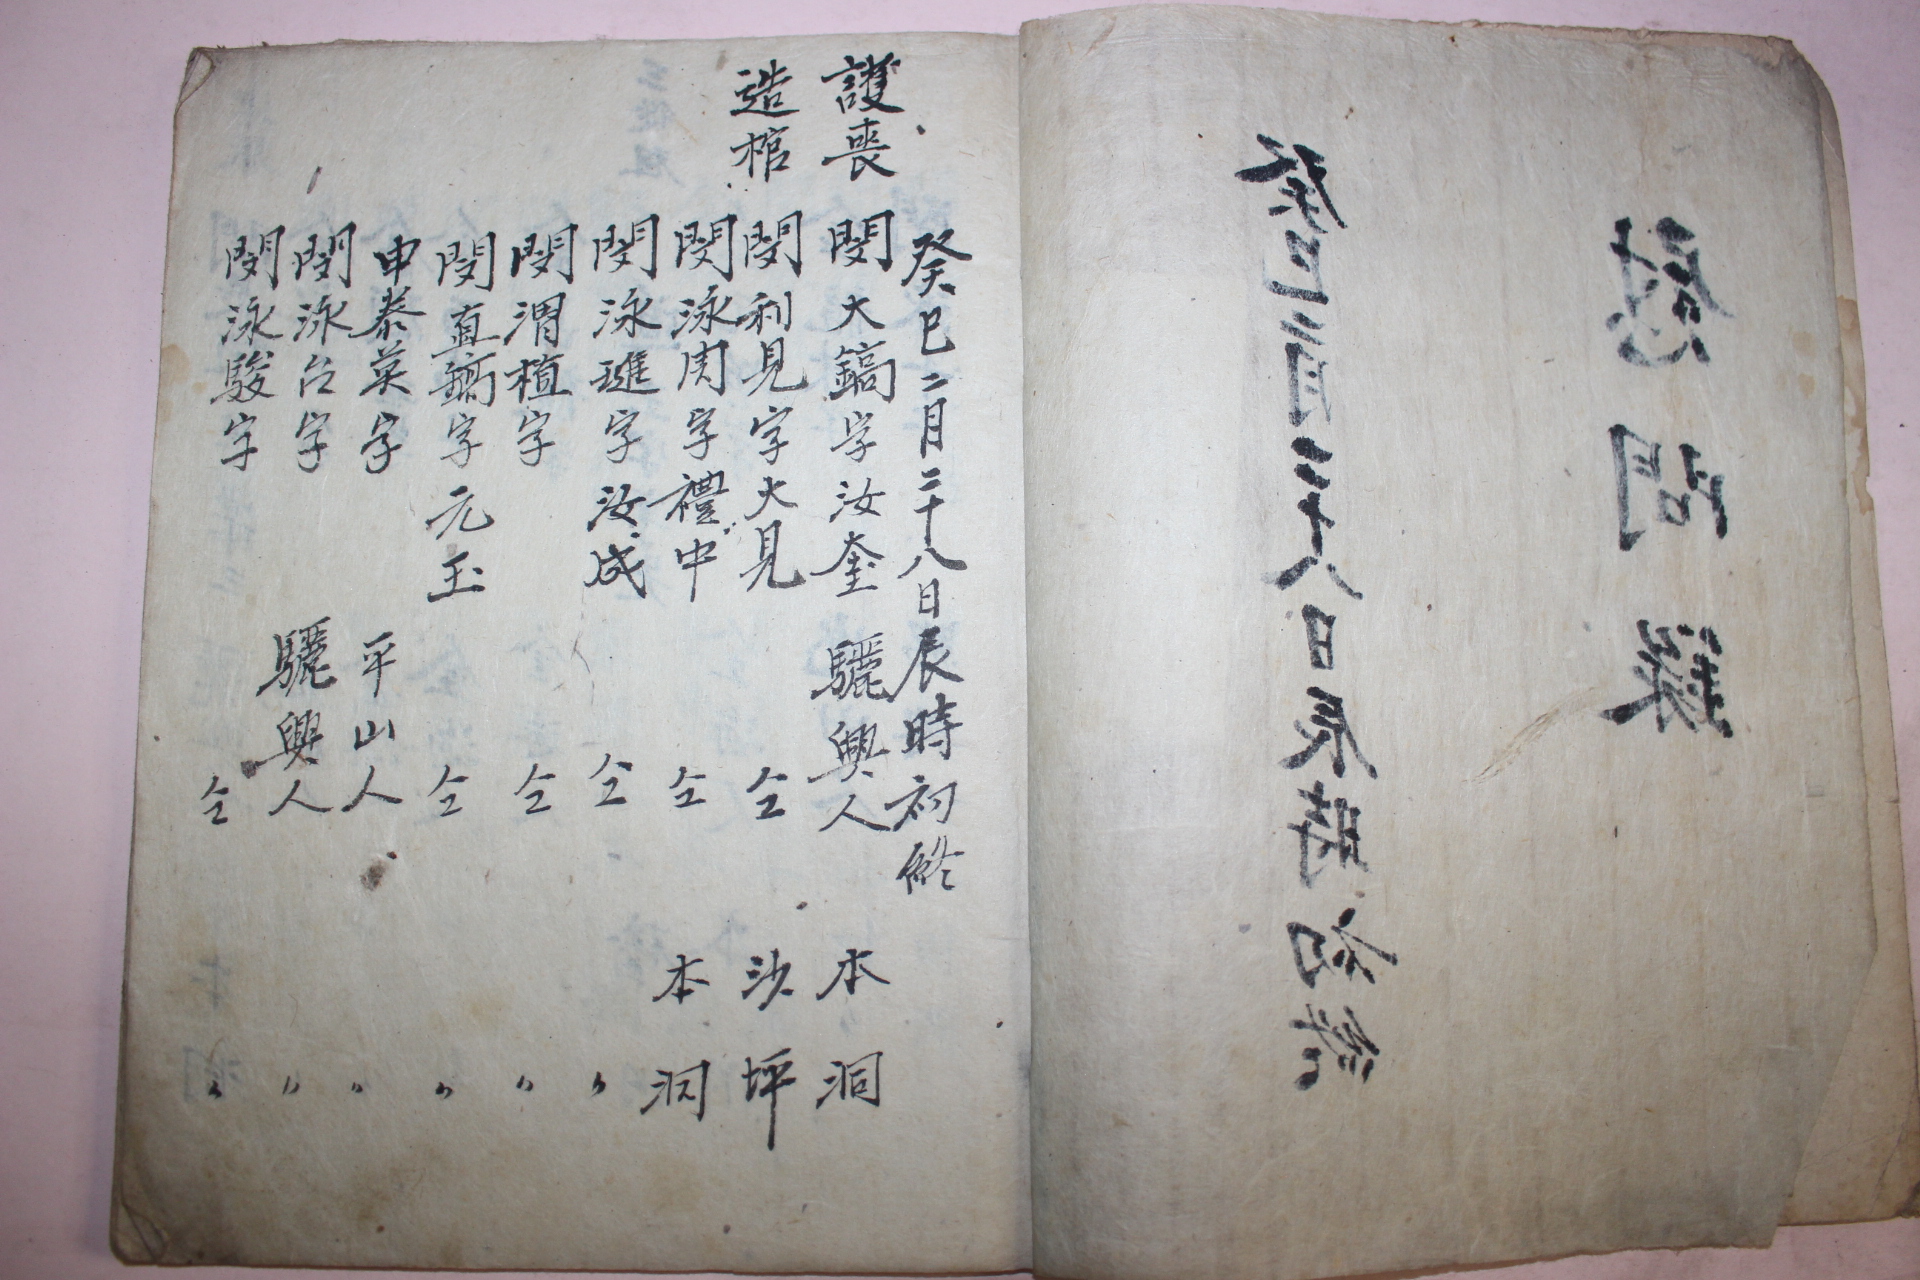 慰問錄
癸巳二月二十八日辰時初終
癸巳二月二十八日辰時初終
護喪 閔大鎬字汝奎 驪興人 本洞
造棺 閔利見字大見 仝 沙坪
閔泳周字禮中 仝 本洞
閔泳璡字汝成 仝 〃
閔渭植字 仝 〃
閔直鎬字元玉 仝 〃
申泰英字 平山人 〃
閔泳台字 驪興人 〃
閔泳駿字 仝 〃